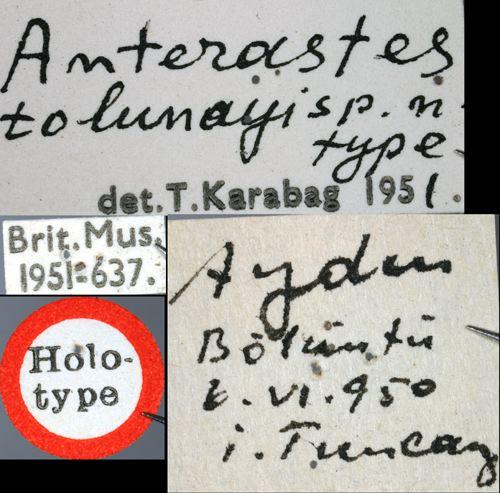 Anterastes
tolunayi sp. n.
type
det. T. Karabag 1951.
Brit. Mus.
1951-637.
Holo-
type
Aydın
VI. 950